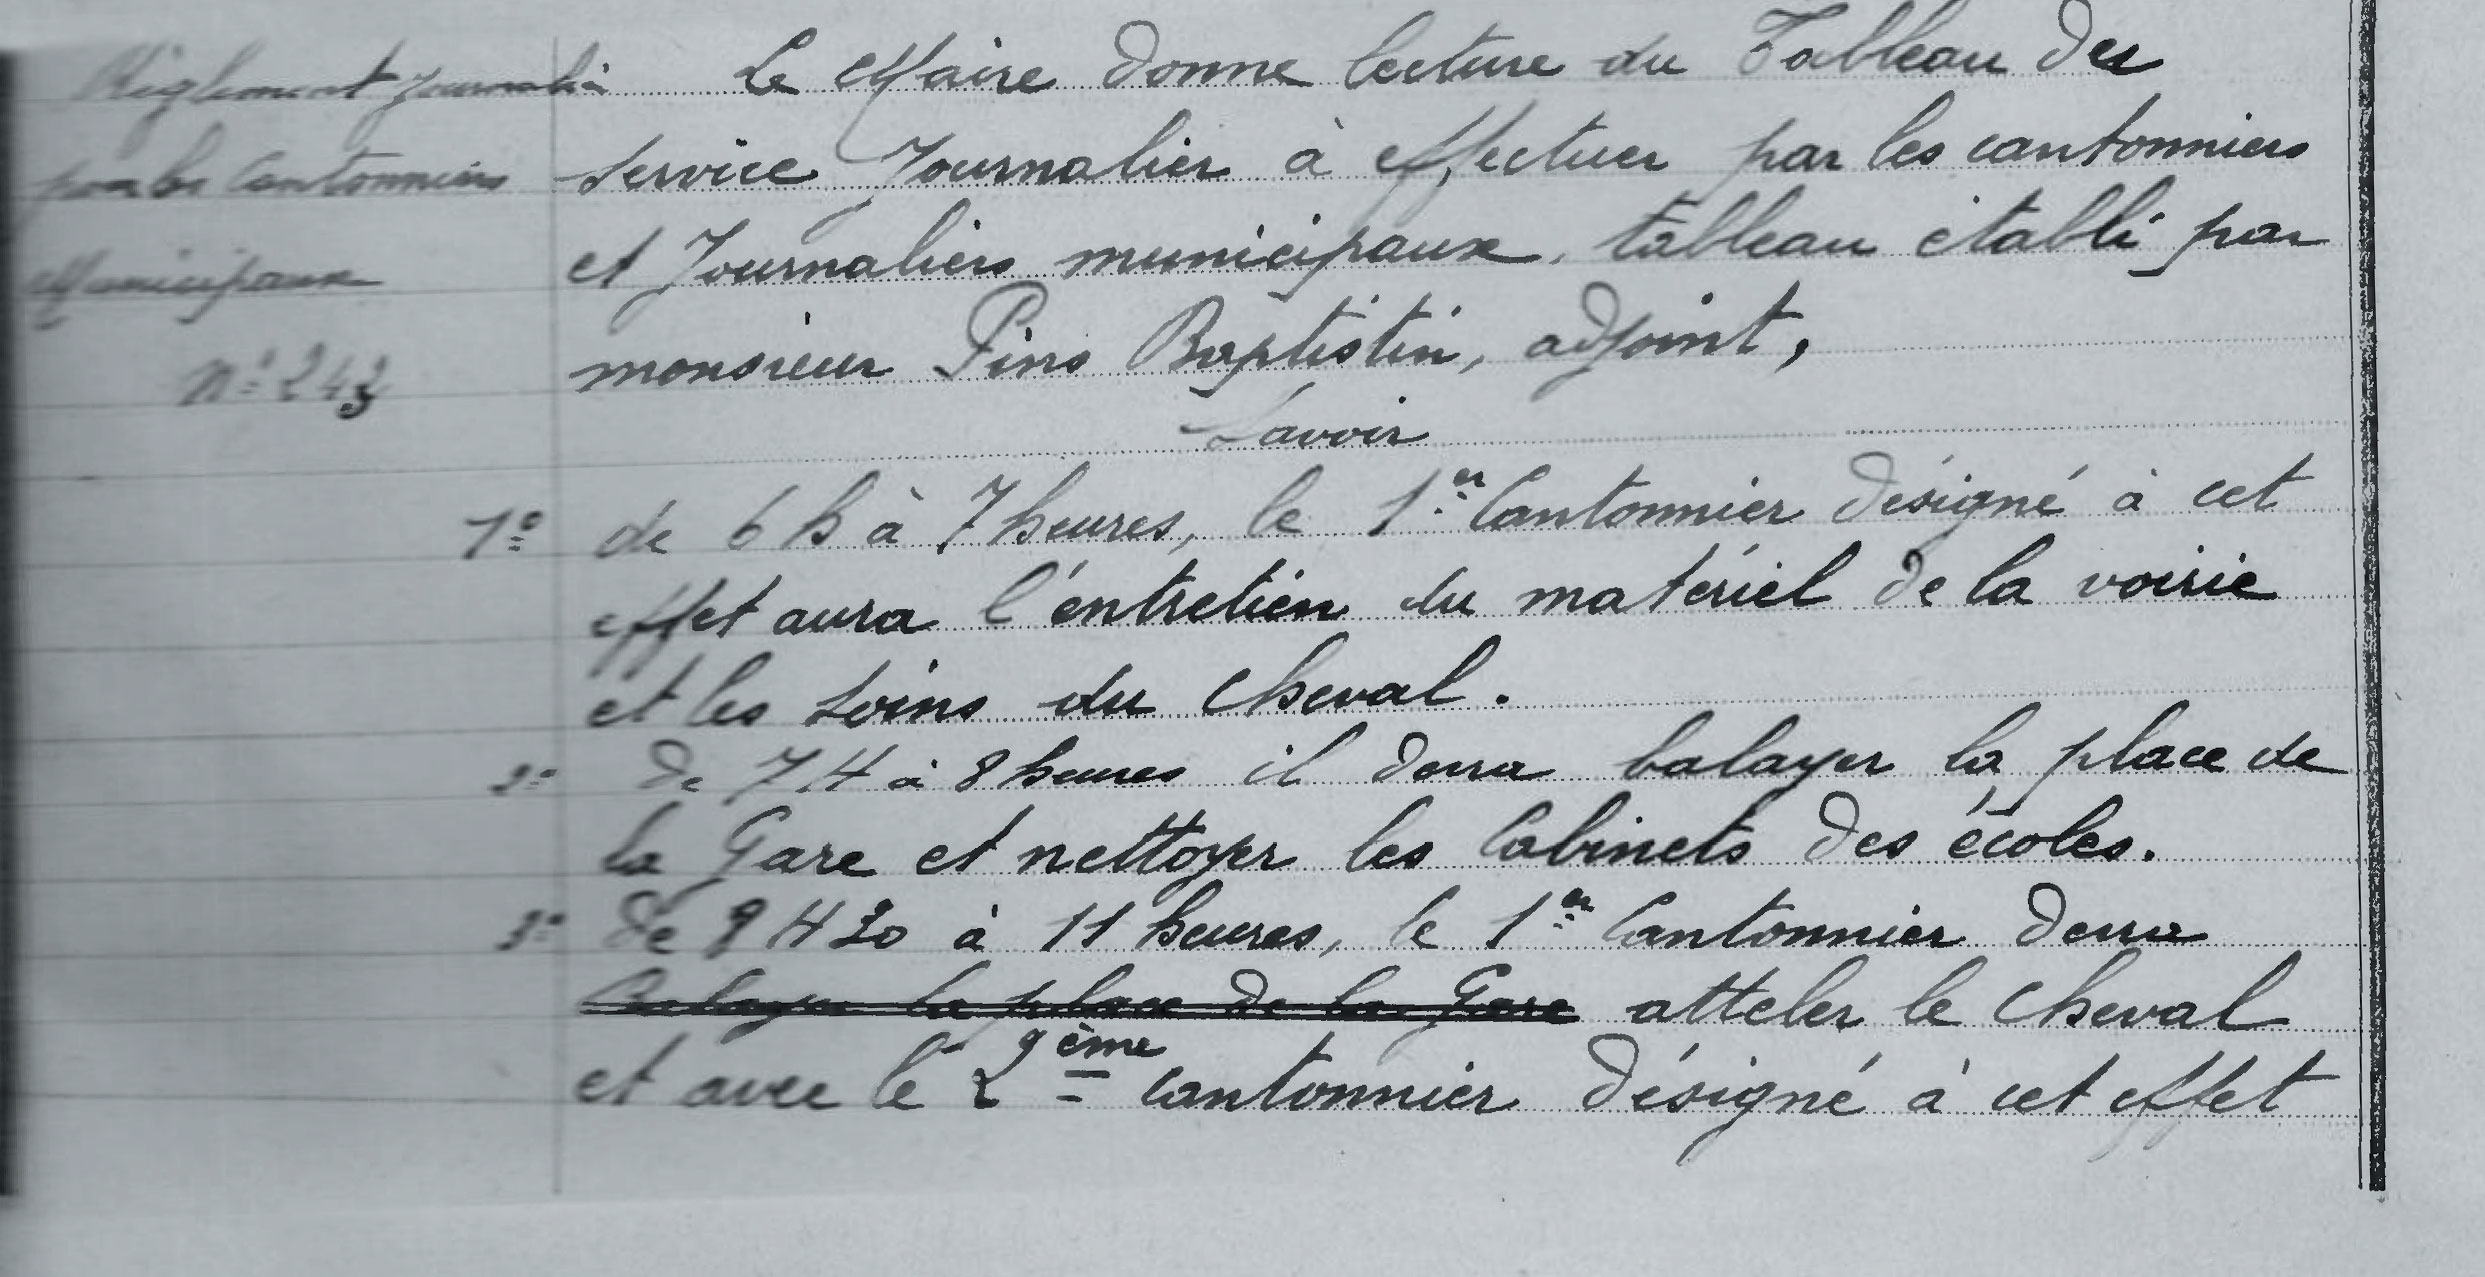 Règlement journalier
pour les Cantonniers
Municipaux
N° 243
Le Maire donne lecture du Tableau des
service Journalier à effectuer par les cantonniers
et Journaliers municipaux, tableau établi par
monsieur Pins Baptistin, adjoint,
Savoir
1° de 6 h à 7 heures, le 1er Cantonnier désigné à cet
effet aura l'entretien du matériel de la voirie
et les soins du cheval.
2° de 7 H à 8 heures il devra balayer la place de
la Gare et nettoyer les Cabinets des écoles.
3° de H 30 à 11 heures, le 1er Cantonnier devra
Balayer la place de la Gare atteler le cheval
et avec le 2ème cantonnier désigné à cet effet